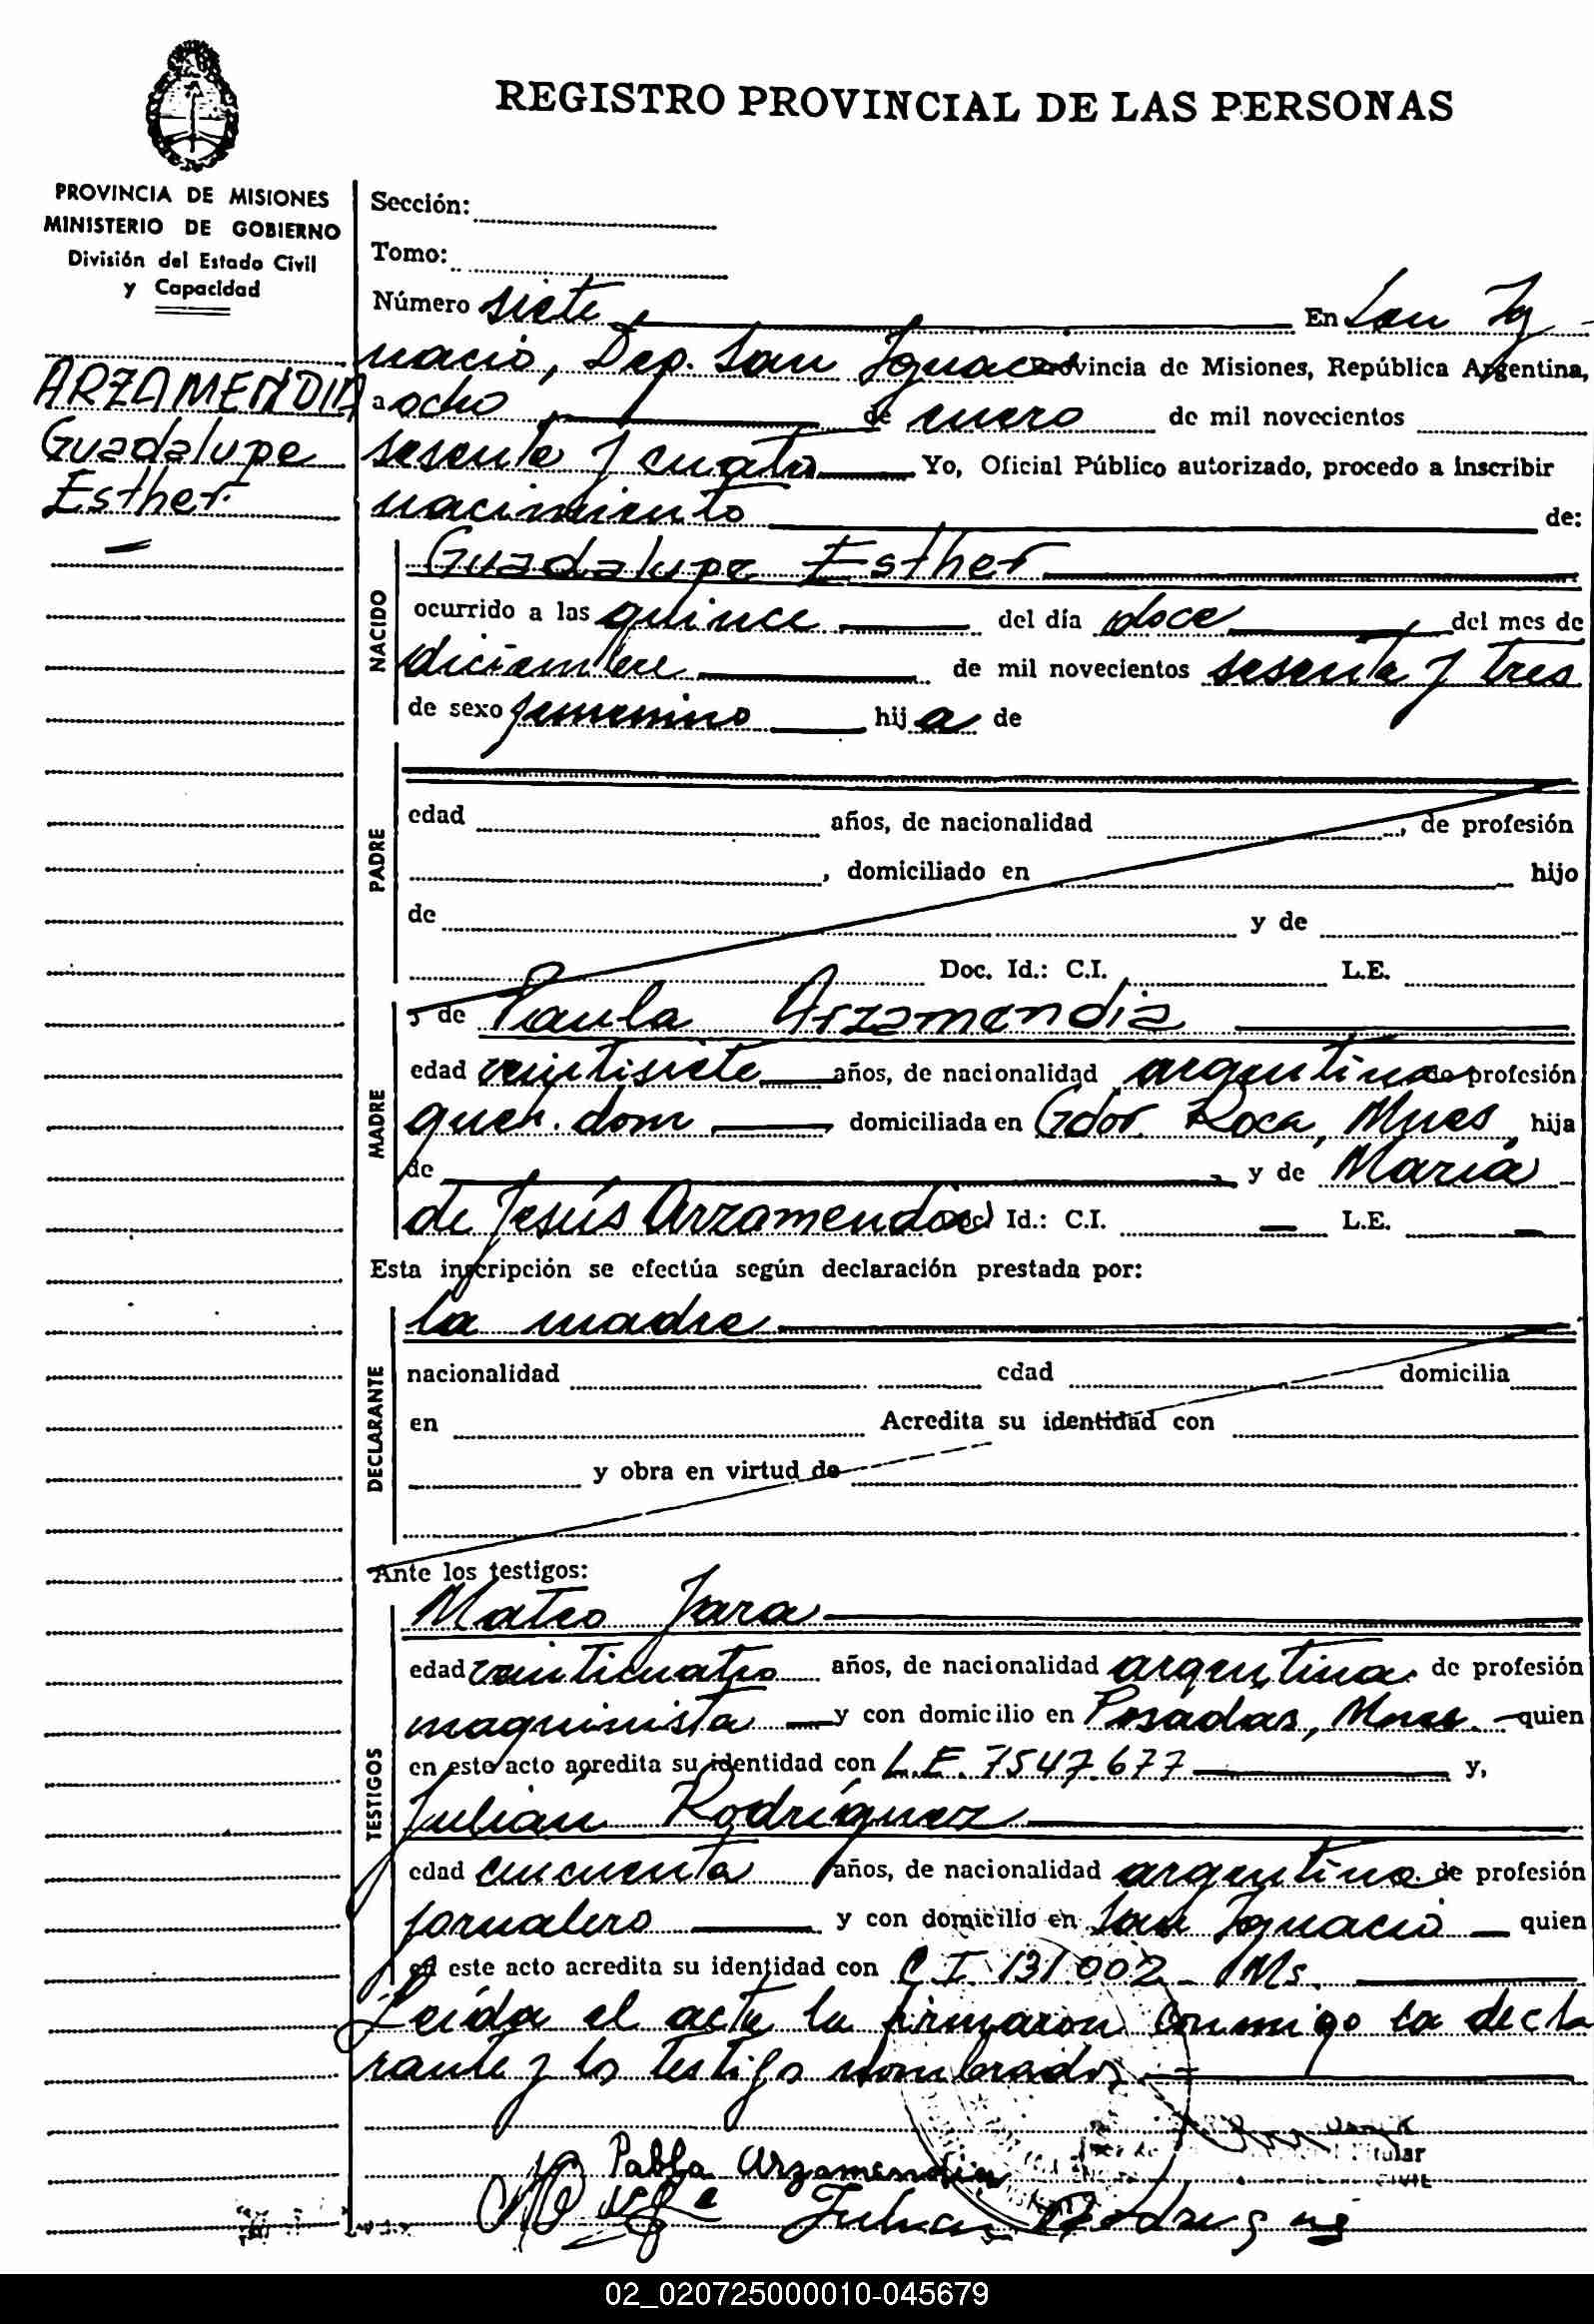 REGISTRO PROVINCIAL DE LAS PERSONAS
PROVINCIA DE MISIONES
MINISTERIO DE GOBIERNO
División del Estado Civil
y Capacidad
ARZAMENDIA
Guadalupe
Esther
Sección:
Tomo:
Número siete En San Ig
nacio, Dep. San Ignacio Provincia de Misiones, República Argentina,
a ocho de enero de mil novecientos
sesenta y cuatro Yo, Oficial Público autorizado, procedo a inscribir
nacimiento de:
NACIDO
Guadalupe Esther
ocurrido a las quince del día doce del mes de
diciembre de mil novecientos sesenta y tres
de sexo femenino hij a de
PADRE
edad años, de nacionalidad , de profesión
, domiciliado en hijo
de y de
Doc. Id.: C.I. L.E.
MADRE
y de Paula Arzamendia
edad veintisiete años, de nacionalidad argentina de profesión
queh. dom domiciliada en Gdor. Roca, Mnes, hija
de y de María
de Jesús Arzamendia Doc. Id.: C.I. — L.E. —
Esta inscripción se efectúa según declaración prestada por:
DECLARANTE
la madre
nacionalidad edad domicilia
en Acredita su identidad con
y obra en virtud de
Ante los testigos:
TESTIGOS
Mateo Jara
edad veinticuatro años, de nacionalidad argentina de profesión
maquinista y con domicilio en Posadas, Mnes. quien
en este acto acredita su identidad con L.E. 7547.677 y,
Julián Rodríguez
edad cincuenta años, de nacionalidad argentina de profesión
jornalero y con domicilio en San Ignacio quien
en este acto acredita su identidad con C.I. 131002 - Ms.
Leída el acta la firmaron conmigo la decla
rante y los testigo nombrados
Pabla Arzamendia
Julian Rodriguez
02_020725000010-045679